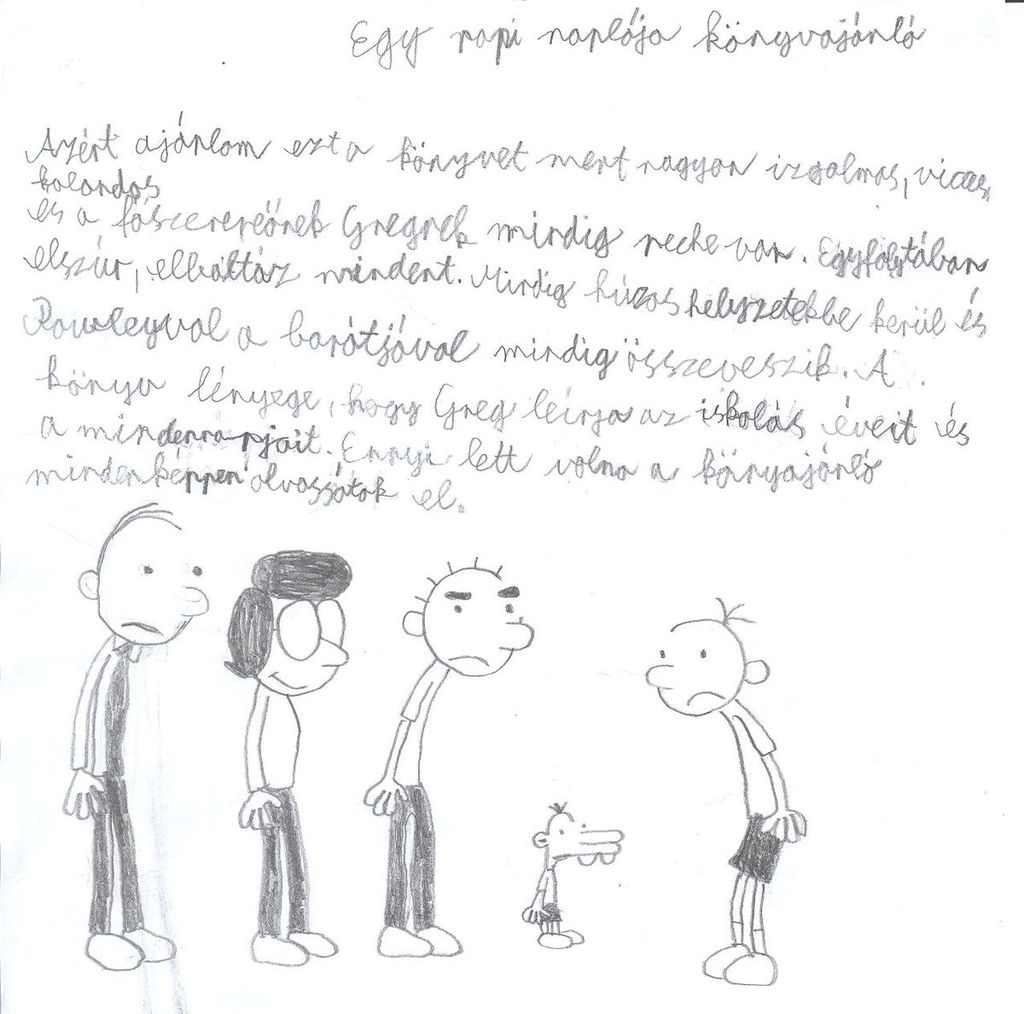 Egy ropi naplója könyvajánló
Azért ajánlom ezt a könyvet mert nagyon izgalmas, vicces,
kalandos
és a főszereplőnek Gregnek mindig peche van. Egyfolytában
elszúr, elbaltáz mindent. Mindig húzos helyzetekbe kerül és
Rowleyval a barátjával mindig összeveszik. A
könyv lényege, hogy Greg leírja az iskolás éveit és
a mindennapjait. Ennyi lett volna a könyajánló
mindenképpen olvassátok el.